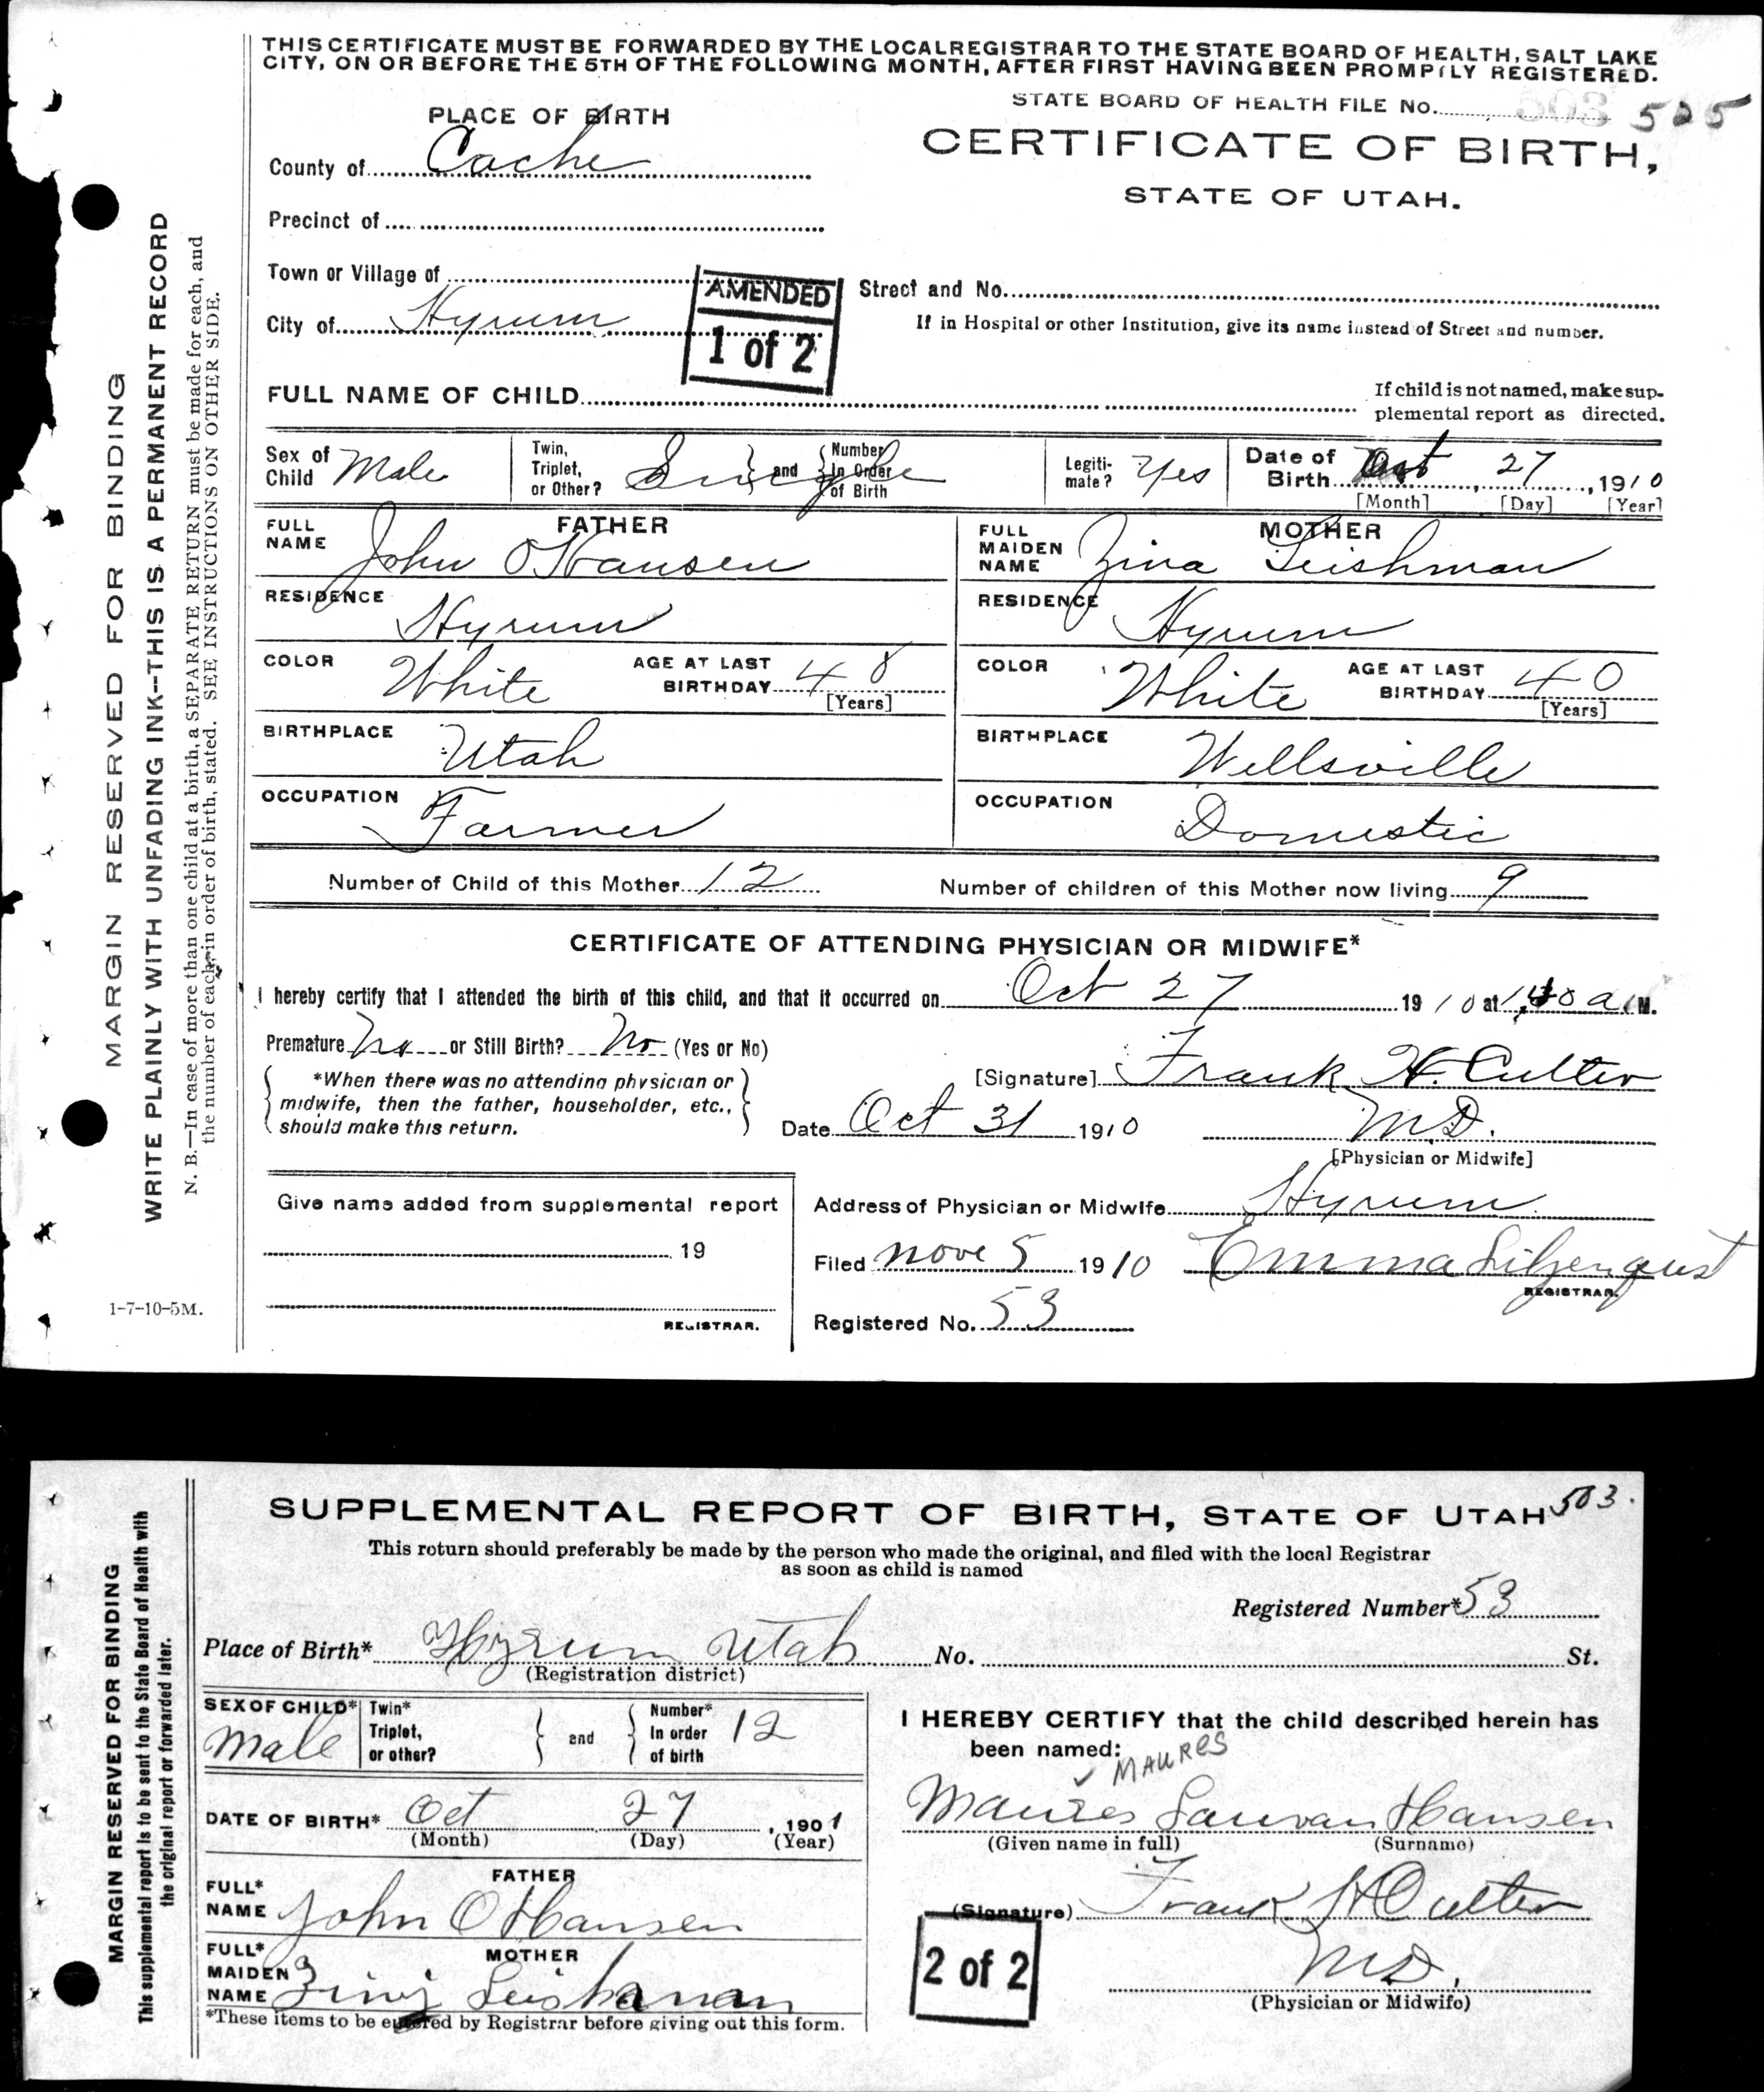 THIS CERTIFICATE MUST BE FORWARDED BY THE LOCAL REGISTRAR TO THE STATE BOARD OF HEALTH, SALT LAKE
CITY, ON OR BEFORE THE 5TH OF THE FOLLOWING MONTH, AFTER FIRST HAVING BEEN PROMPTLY REGISTERED.
STATE BOARD OF HEALTH FILE No. 503 525
PLACE OF BIRTH
CERTIFICATE OF BIRTH,
STATE OF UTAH.
County of Cache
Precinct of
Town or Village of
AMENDED
1 of 2
Street and No.
City of Hyrum
If in Hospital or other Institution, give its name instead of Street and number.
FULL NAME OF CHILD
If child is not named, make sup-
plemental report as directed.
Sex of Child Male
Twin, Triplet, or Other? Single and Number In Order of Birth
Legiti-mate? Yes
Date of Birth Oct 27, 1910
[Month] [Day] [Year]
FATHER
FULL NAME John O Hansen
RESIDENCE Hyrum
COLOR White AGE AT LAST BIRTHDAY 48 [Years]
BIRTHPLACE Utah
OCCUPATION Farmer
MOTHER
FULL MAIDEN NAME Zina Leishman
RESIDENCE Hyrum
COLOR White AGE AT LAST BIRTHDAY 40 [Years]
BIRTHPLACE Wellsville
OCCUPATION Domestic
Number of Child of this Mother 12 Number of children of this Mother now living 9
CERTIFICATE OF ATTENDING PHYSICIAN OR MIDWIFE*
I hereby certify that I attended the birth of this child, and that it occurred on Oct 27 1910 at a M.
Premature No or Still Birth? No (Yes or No)
*When there was no attending physician or
midwife, then the father, householder, etc.,
should make this return.
[Signature] Frank H. Culter
Date Oct 31 1910 M.D.
[Physician or Midwife]
Give name added from supplemental report
19
REGISTRAR.
Address of Physician or Midwife Hyrum
Filed Nove 5 1910 Emma Liljenquist
REGISTRAR.
Registered No. 53
1-7-10-5M.
MARGIN RESERVED FOR BINDING
WRITE PLAINLY WITH UNFADING INK--THIS IS A PERMANENT RECORD
N. B.—In case of more than one child at a birth, a SEPARATE RETURN must be made for each, and
the number of each, in order of birth, stated. SEE INSTRUCTIONS ON OTHER SIDE.
SUPPLEMENTAL REPORT OF BIRTH, STATE OF UTAH 503.
This return should preferably be made by the person who made the original, and filed with the local Registrar
as soon as child is named
Registered Number* 53
Place of Birth* Hyrum Utah No. St.
(Registration district)
SEX OF CHILD* Male
Twin* Triplet, or other? and Number* In order of birth 12
DATE OF BIRTH* Oct 27, 1901
(Month) (Day) (Year)
FATHER
FULL* NAME John O Hansen
MOTHER
FULL* MAIDEN NAME Leishman
*These items to be entered by Registrar before giving out this form.
I HEREBY CERTIFY that the child described herein has
been named:
MAURES
Maures Lauvan Hansen
(Given name in full) (Surname)
(Signature) Frank H Culter
M.D.
(Physician or Midwife)
2 of 2
MARGIN RESERVED FOR BINDING
This supplemental report is to be sent to the State Board of Health with
the original report or forwarded later.